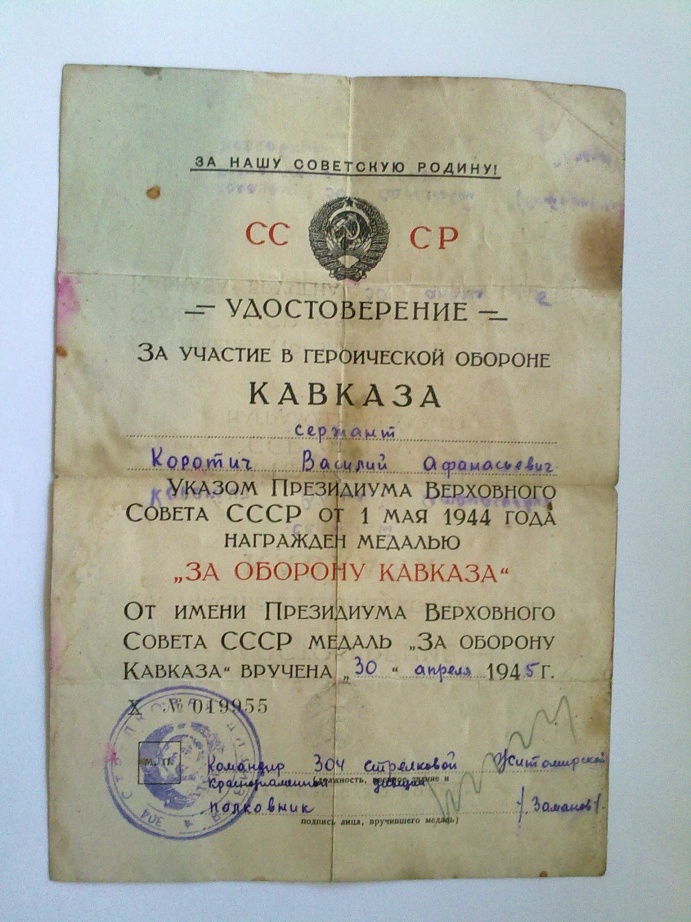 ЗА НАШУ СОВЕТСКУЮ РОДИНУ!
СС СР
УДОСТОВЕРЕНИЕ
ЗА УЧАСТИЕ В ГЕРОИЧЕСКОЙ ОБОРОНЕ
КАВКАЗА
сержант
Коротич Василий Афанасьевич
УКАЗОМ ПРЕЗИДИУМА ВЕРХОВНОГО
СОВЕТА СССР ОТ 1 МАЯ 1944 ГОДА
НАГРАЖДЕН МЕДАЛЬЮ
„ЗА ОБОРОНУ КАВКАЗА“
ОТ ИМЕНИ ПРЕЗИДИУМА ВЕРХОВНОГО
СОВЕТА СССР МЕДАЛЬ „ЗА ОБОРОНУ
КАВКАЗА“ ВРУЧЕНА „30“ апреля 1945 г.
Х № 019955
М.П.
Командир 304 стрелковой Житомирской
(должность, военное звание и
Краснознаменной дивизии
полковник /Заманов/.
подпись лица, вручившего медаль)
304